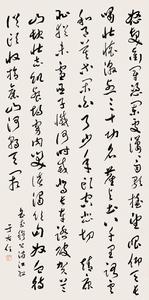 怒髮衝冠憑闌處瀟瀟雨歇抬望眼仰天長
嘯壯懷激烈三十功名塵與土八千里路雲
和月莫等閒白了少年頭空悲切 靖康
恥猶未雪臣子恨何時滅駕長車踏破賀蘭
山缺壯志飢餐胡虜肉笑談渴飲匈奴血待
從頭收拾舊山河朝天闕
岳武穆公滿江紅
于右任